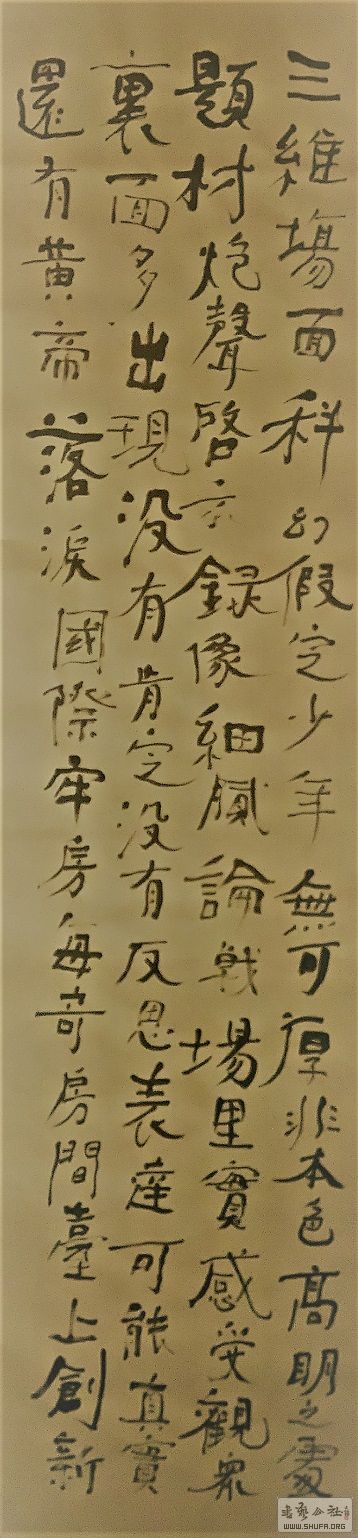 三維場面科幻假定少年無可厚非本色高明之處
題材炮聲啓示録像細膩論戰場里實感受觀衆
裏面多出現没有肯定没有反思表達可能真實
還有黄帝落淚國際牢房每奇房間臺上創新
WWW.SHUFA.ORG